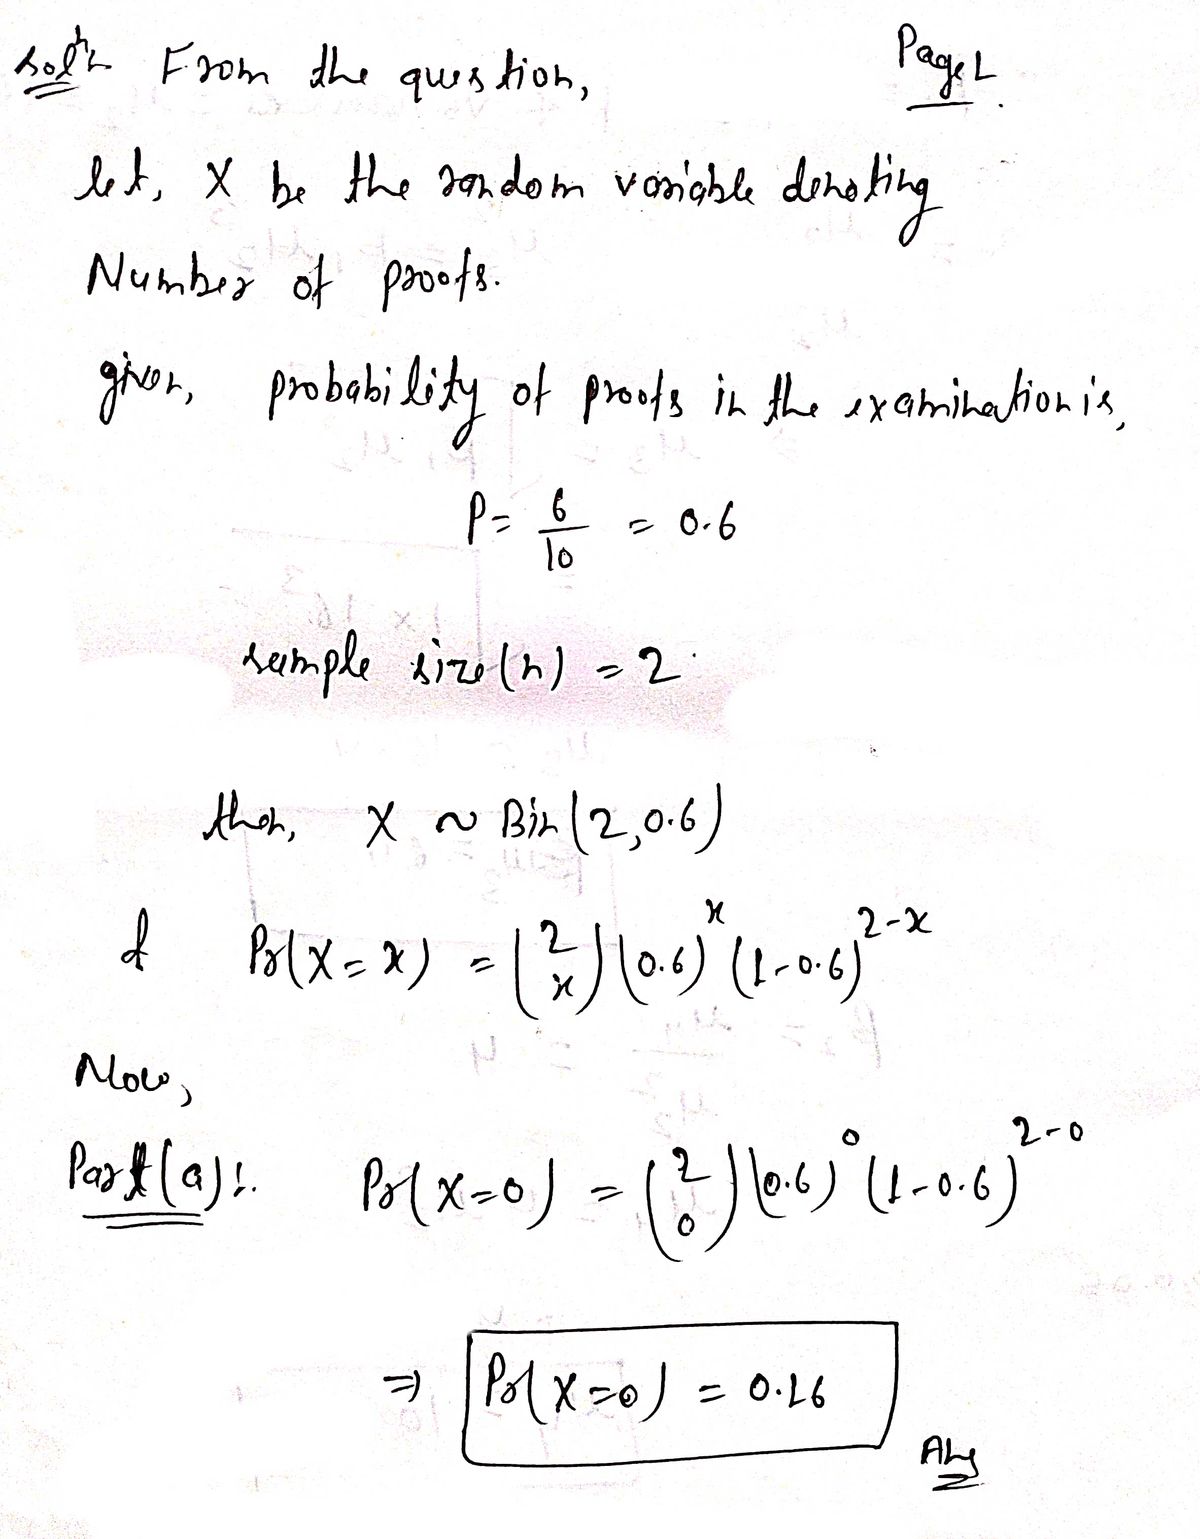 Solⁿ From the question,
Page 1.
let, X be the random variable denoting
Number of proofs.
given, probability of proofs in the examination is,
P = 6/10 = 0.6
sample size (n) = 2
then, X ~ Bin (2, 0.6)
& Pr(X = x) = (2 x) (0.6)^x (1-0.6)^{2-x}
Now,
Part (a):. Pr(X=0) = (2 0) (0.6)^0 (1-0.6)^{2-0}
⇒ Pr(X=0) = 0.16
Ans